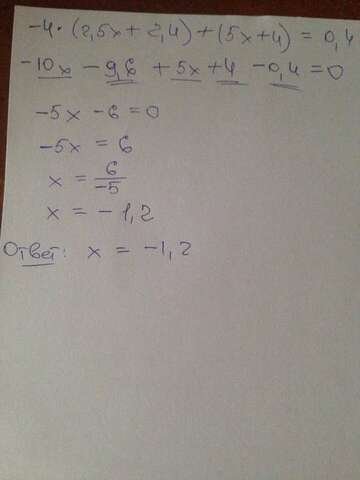 -4·(2,5x + 2,4) + (5x+4) = 0,4
-10x - 9,6 + 5x + 4 - 0,4 = 0
-5x - 6 = 0
-5x = 6
x = 6/-5
x = -1,2
Ответ: x = -1,2